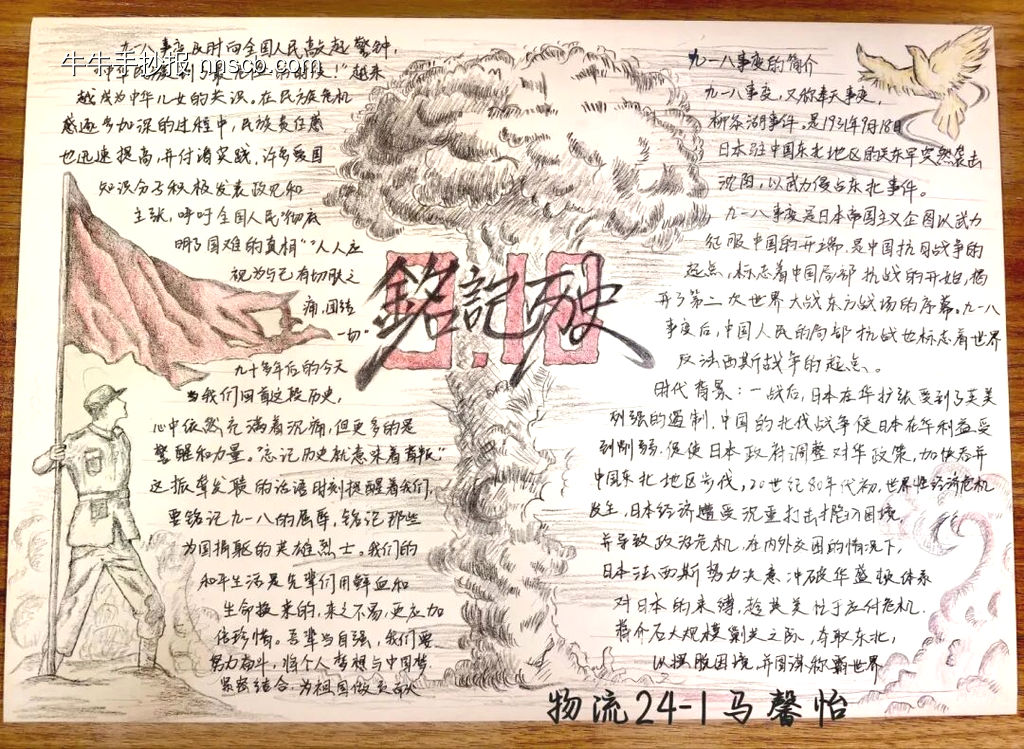 牛牛手抄报 nnscb.com
九一八事变及时向全国人民敲起警钟,
越来
越成为中华儿女的共识。在民族危机
意逐步加深的过程中,民族责任感
也迅速提高,并付诸实践。许多爱国
知识分子积极发表政见和
主张,呼吁全国人民"彻底
明了国难的真相""人人应
视为与己有切肤之
痛,团结
一切"
九十多年后的今天
当我们回首这段历史,
心中依然充满着沉痛,但更多的是
警醒和力量。"忘记历史就意味着背叛"
这振聋发聩的话语时刻提醒着我们,
要铭记九一八的屈辱,铭记那些
为国捐躯的英雄烈士。我们的
和平生活是先辈们用鲜血和
生命换来的,来之不易,更应加
倍珍惜。吾辈当自强,我们要
努力奋斗,将个人梦想与中国梦
紧密结合,为祖国做贡献
9.18
銘記历史
九一八事变的简介
九一八事变,又称奉天事变,
柳条湖事件,是1931年9月18日
日本驻中国东北地区的关东军突然袭击
沈阳,以武力侵占东北事件。
九一八事变是日本帝国主义企图以武力
征服中国的开端,是中国抗日战争的
起点,标志着中国局部抗战的开始,揭
开了第二次世界大战东方战场的序幕。九一八
事变后,中国人民的局部抗战也标志着世界
反法西斯战争的起点。
时代背景:一战后,日本在华扩张受到了英美
列强的遏制,中国的北伐战争使日本在华利益受
到削弱,促使日本政府调整对华政策,加快吞并
中国东北地区步伐,20世纪80年代初,世界性经济危机
发生,日本经济遭受沉重打击陷入困境,
并导致政治危机,在内外交困的情况下,
日本法西斯势力决意冲破华盛顿体系
对日本的束缚,趁英美忙于应付危机,
蒋介石大规模剿共之际,夺取东北,
以摆脱困境,并图谋称霸世界
物流24-1马馨怡